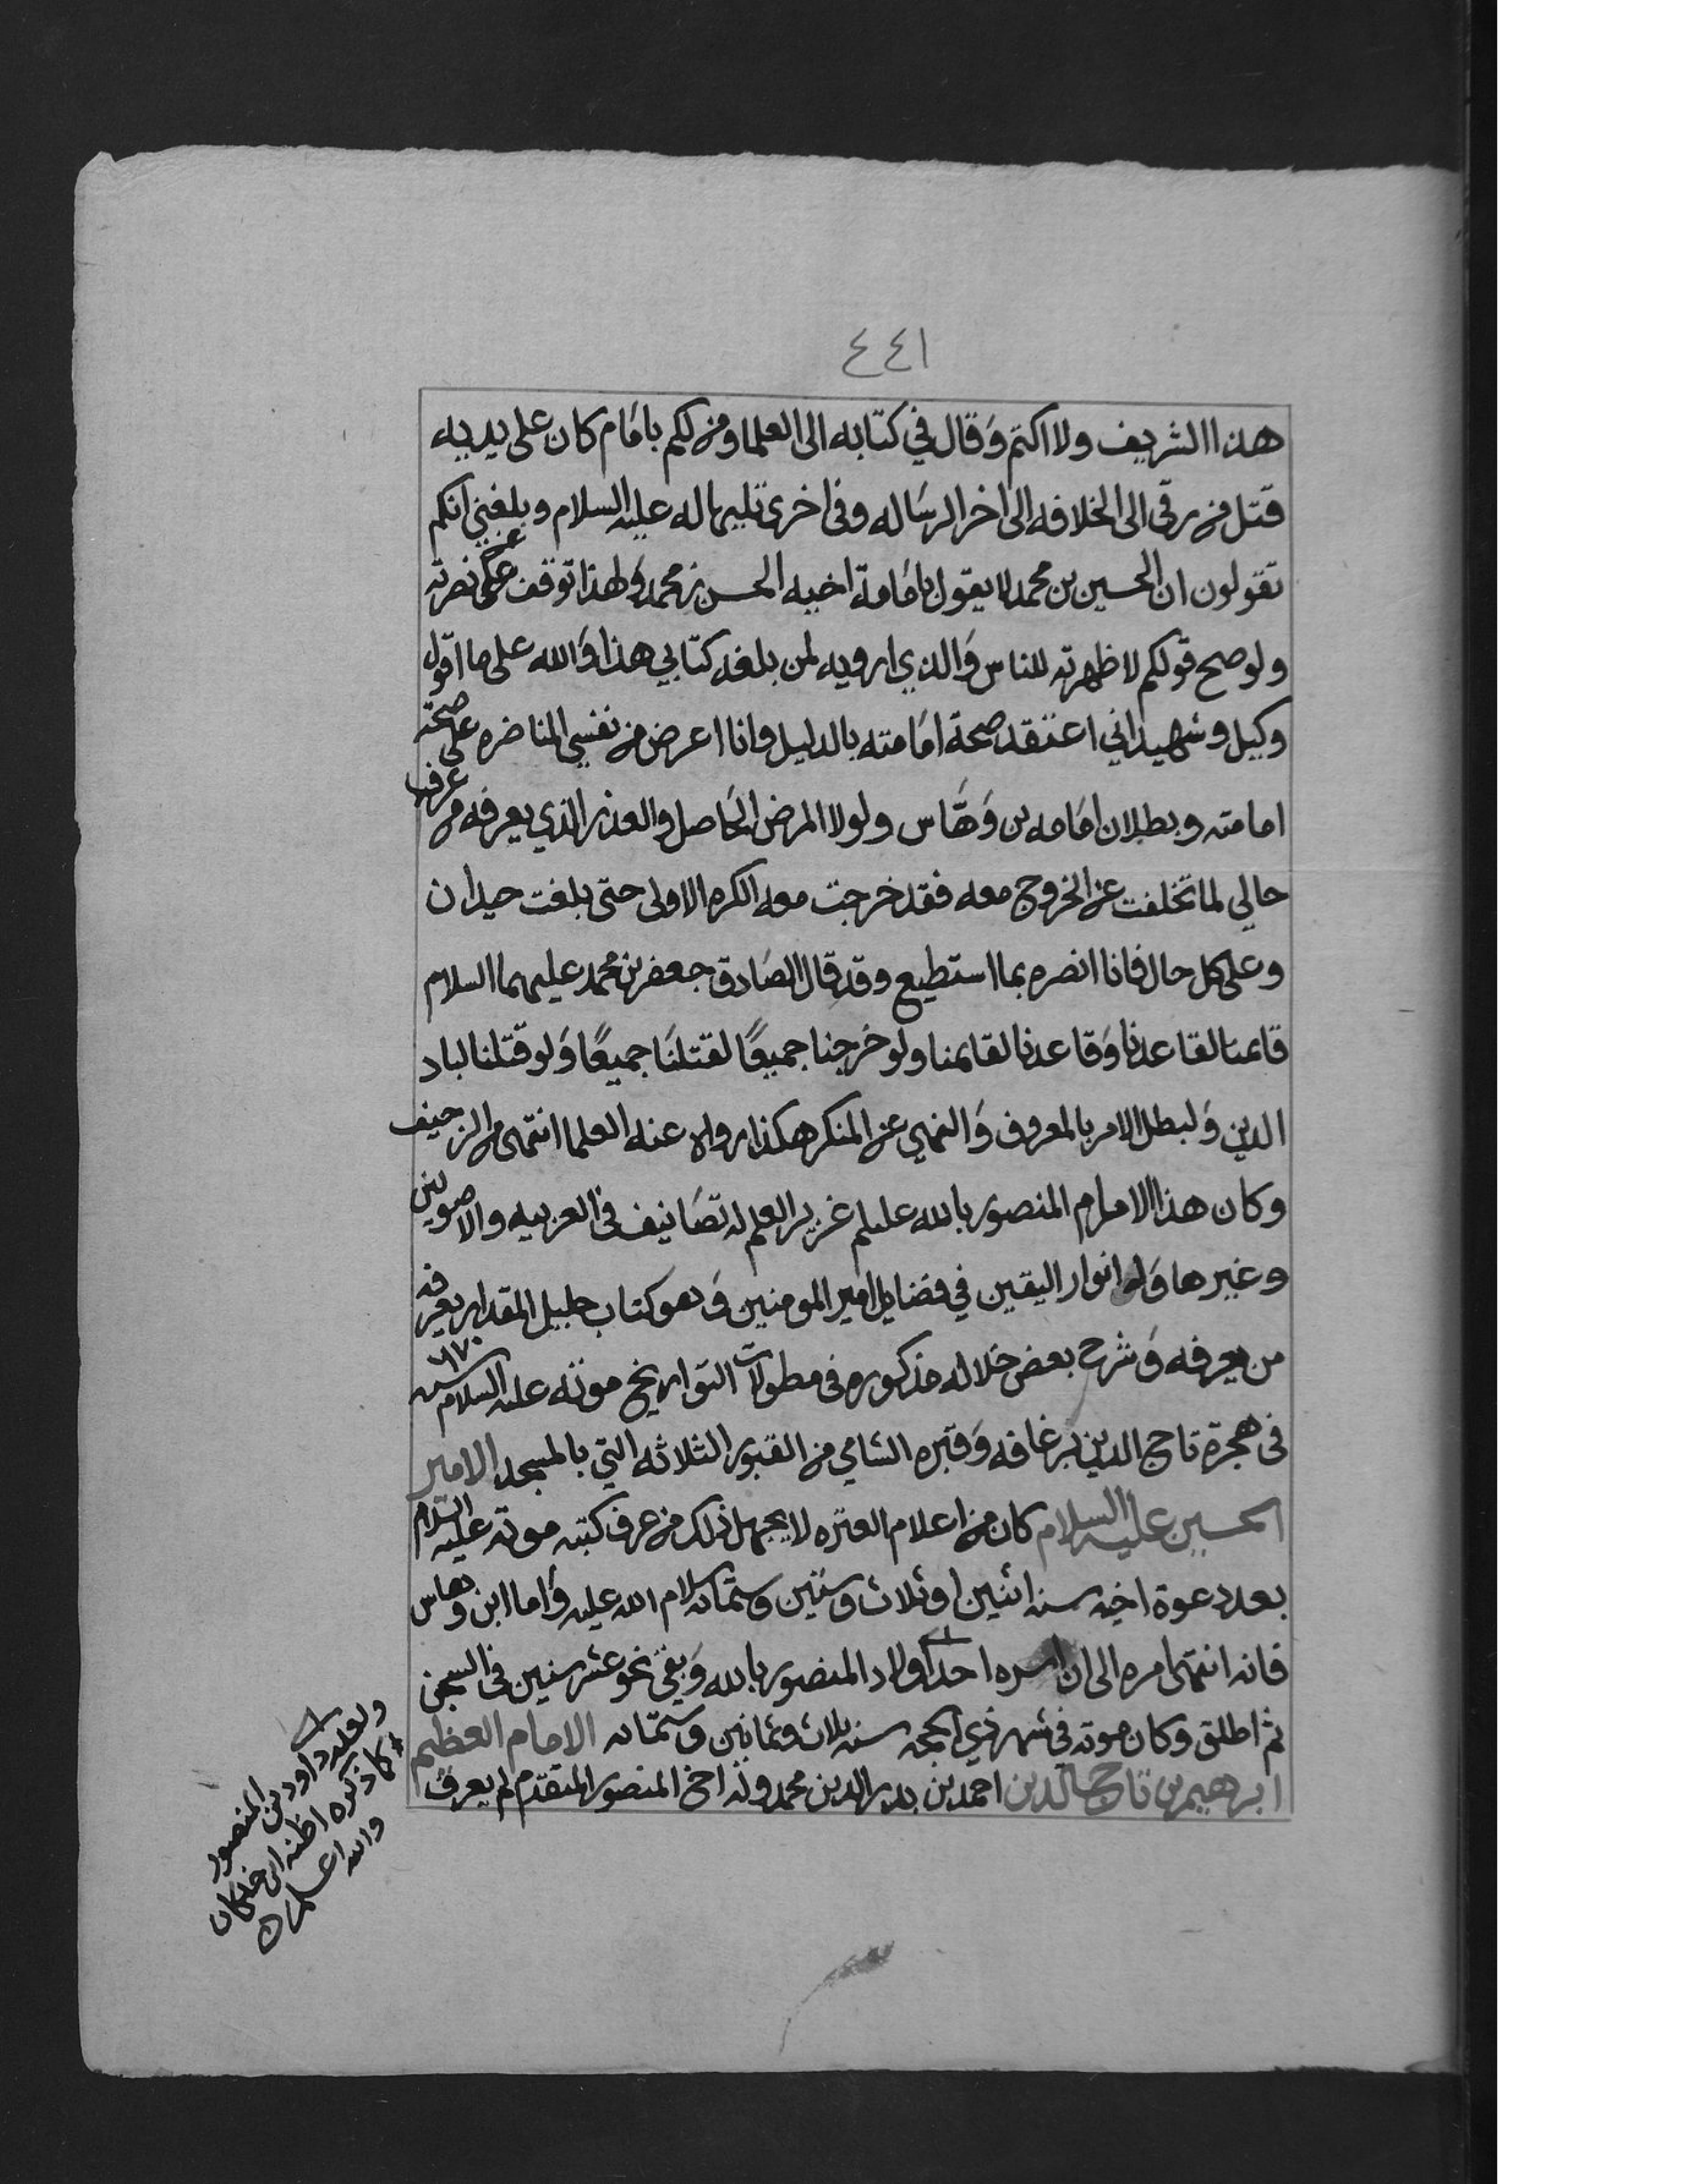 ٤٤١
هذا الشريف ولا اكتم وَقال في كتابه الى العلما ومن لكم بامَام كان على يديه
قتل من رقى الى الخلافه الى اخر الرسَاله وفى اخرى تليها له عليه السلام وبلغني انكم
تقولون ان الحسين بن محمد لا يقول بامَامة اخيه الحسن بن محمد وَلهذا توقف عن نصرته
ولو صح قولكم لاظهرته للناس وَالذي ارويه لمن بلغه كتابي هذا وَالله على ما اقول
وكيل وشهيد اني اعتقد صحة امَامته بالدليل وانا اعرض من نفسي المناضره على صحة
امامته وبطلان امَامه بن وَهَّاس ولولا المرض الحَاصل والعذر الذي يعرفه من عرف
حالي لما تخلفت عن الخروج معه فقد خرجت معه الكره الاولى حتى بلغت حيدان
وعلى كل حال فانا انصره بما استطيع وقد قال الصَادق جعفر بن محمد عليهما السلام
قائمنا لقاعدنا وَقاعدنا لقائمنا ولو خرجنا جميعًا لقتلنَا جميعًا وَلو قتلنا لباد
الدين وَلبطل الامر بالمعروف وَالنهي عن المنكر هكذا رواه عنه العلما انتهى من الزحيف
وكان هذا الامام المنصور بالله عليلم غزير العلم له تصَانيف فى العربيه والاصولين
وغيرها وَله انوار اليقين في فضايل امير المومنين وَهو كتاب جليل المقدار يعرفه
من يعرفه وَشرح بعض خلاله مذكوره فى مطولات التواريخ موته عليه السلام سنه ٦٧٠
فى هجرة تاج الدين برغافه وَقبره الشامي من القبور الثلاثه التي بالمسجد الامير
الحسين عليه السلام كان من اعلام العتره لا يجهل ذلك من عرف كتبه موته عليه السلام
بعد دعوة اخيه سنه اثنين او ثلاث وستين وستمائه سلام الله عليه وَاما ابن وهاس
فانه انتهى امره الى ان اسره احد اولاد المنصور بالله وَبقي نحو عشر سنين فى السجن
ثم اطلق وكان موته في شهر ذي الحجه سنه ثلاث وثمانين وستمائه الامام العظيم
ابرهيم بن تاج الدين احمد بن بدر الدين محمد ولد اخ المنصور المتقدم لم يعرف
ولعله داود بن المنصور
كما ذكره اظنه ابن خلكان
والله اعلم